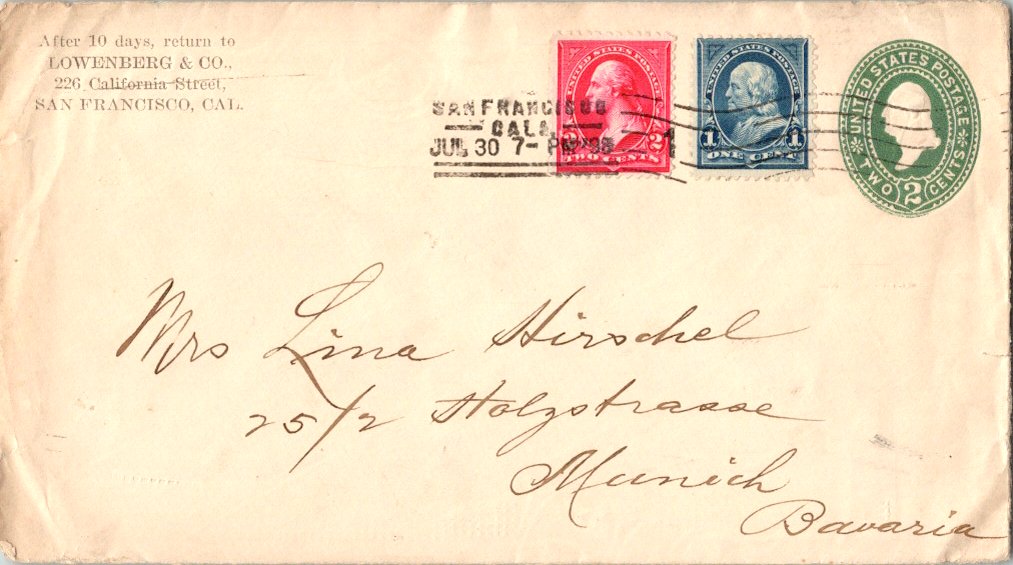 After 10 days, return to
LOWENBERG & CO.,
226 California Street,
SAN FRANCISCO, CAL.
UNITED STATES POSTAGE
2 2
TWO CENTS
UNITED STATES POSTAGE
1 1
ONE CENT
UNITED STATES POSTAGE
TWO 2 CENTS
SAN FRANCISCO
CALA.
JUL 30 7- PM
1
Mrs Lina Hirschel
25/2 Holzstrasse
Munich
Bavaria